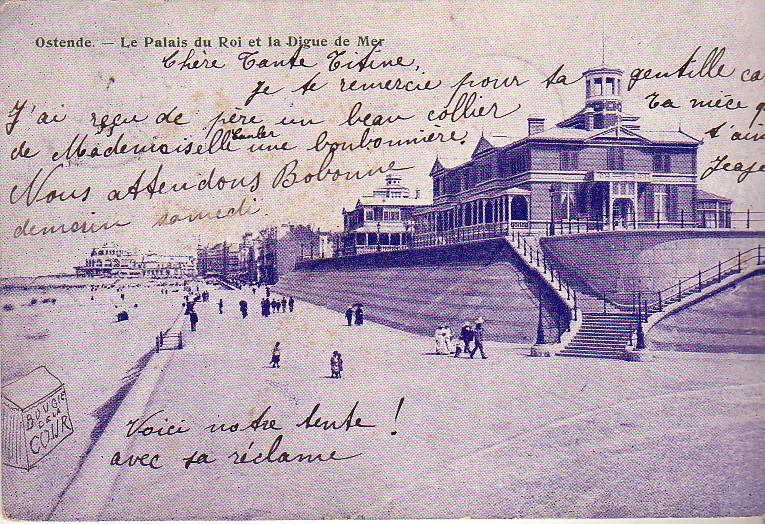 Ostende. — Le Palais du Roi et la Digue de Mer
Chère Tante Titine,
je te remercie pour ta gentille ca
J'ai reçu de père un beau collier
Ta nièce q
de Mademoiselle une bonbonnière.
t'aim
Nous attendons Bobonne
demain samedi.
BOUGIE
DE LA
COUR
Voici notre tente !
avec sa réclame